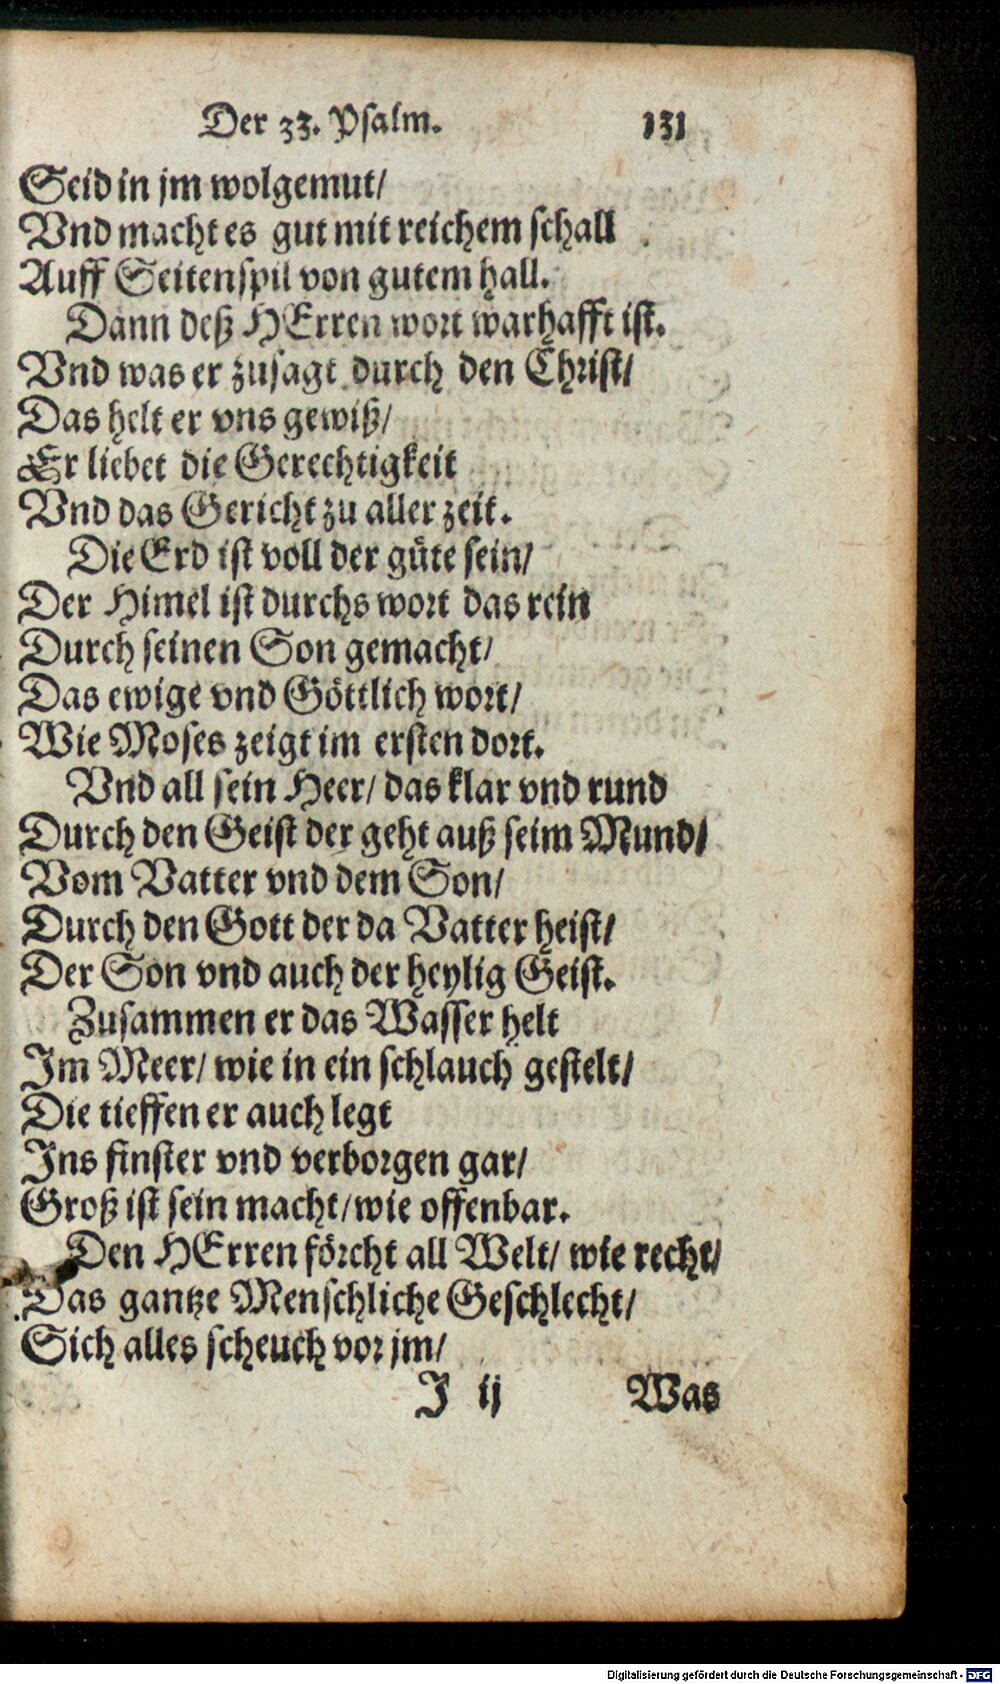 Der 33. Psalm. 131
Seid in jm wolgemut/
Vnd macht es gut mit reichem schall
Auff Seitenspil von gutem hall.
Dann deß HErren wort warhafft ist.
Vnd was er zusagt durch den Christ/
Das helt er vns gewiß/
Er liebet die Gerechtigkeit
Vnd das Gericht zu aller zeit.
Die Erd ist voll der güte sein/
Der Himel ist durchs wort das rein
Durch seinen Son gemacht/
Das ewige vnd Göttlich wort/
Wie Moses zeigt im ersten dort.
Vnd all sein Heer/ das klar vnd rund
Durch den Geist der geht auß seim Mund/
Vom Vatter vnd dem Son/
Durch den Gott der da Vatter heist/
Der Son vnd auch der heylig Geist.
Zusammen er das Wasser helt
Im Meer/ wie in ein schlauch gestelt/
Die tieffen er auch legt
Ins finster vnd verborgen gar/
Groß ist sein macht/ wie offenbar.
Den HErren förcht all Welt/ wie recht/
Das gantze Menschliche Geschlecht/
Sich alles scheuch vor jm/
J ij Was
Digitalisierung gefördert durch die Deutsche Forschungsgemeinschaft - DFG